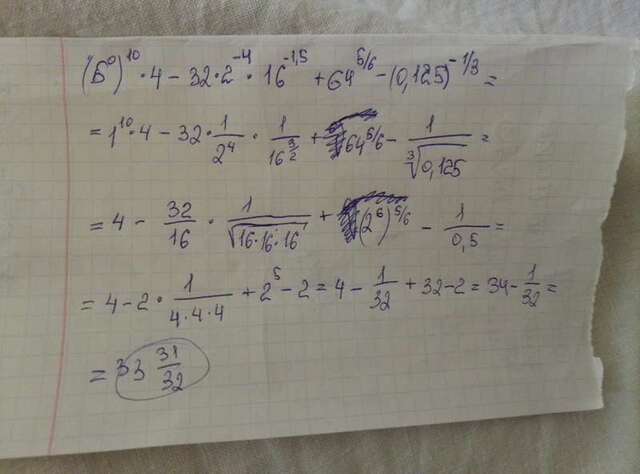 (Б⁰)¹⁰·4 − 32·2⁻⁴·16⁻¹,⁵ + 64⁵/⁶ − (0,125)⁻¹/³ =
= 1¹⁰·4 − 32·1/2⁴ · 1/16^(3/2) + 64⁵/⁶ − 1/∛0,125 =
= 4 − 32/16 · 1/√(16·16·16) + (2⁶)⁵/⁶ − 1/0,5 =
= 4 − 2 · 1/(4·4·4) + 2⁵ − 2 = 4 − 1/32 + 32 − 2 = 34 − 1/32 =
= 33 31/32